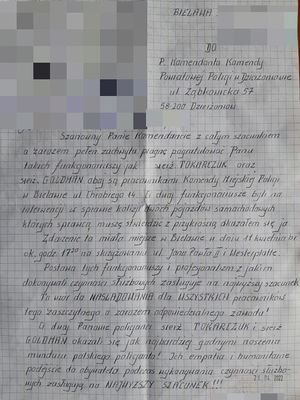 BIELAWA
DO
P. Komendanta Komendy
Powiatowej Policji w Dzierżoniowie
ul. Ząbkowicka 57
58-200 Dzierżoniów
Szanowny Panie Komendancie z całym szacunkiem
a zarazem pełen zachwytu pragnę pogratulować Panu
takich funkcjonariuszy jak sierż. TOKARCZUK oraz
sierż. GOLDMAN obaj są pracownikami Komendy Miejskiej Policji
w Bielawie ul. Chrobiego 14. Ci dwaj funkcjonariusze byli na
interwencji w sprawie kolizji dwóch pojazdów samochodowych
których sprawcą muszę stwierdzić z przykrością okazałem się ja
Zdarzenie to miało miejsce w Bielawie w dniu 11 kwietnia br
ok. godz. 17 na skrzyżowaniu ul. Jana Pawła II i Westerplatte.
Postawa tych funkcjonariuszy i profesjonalizm z jakim
dokonywali czynności służbowych zasługuje na najwyższy szacunek
To wzór do NAŚLADOWANIA dla WSZYSTKICH pracowników
tego zaszczytnego a zarazem odpowiedzialnego zawodu!
Ci dwaj Panowie policjanci sierż. TOKARCZUK i sierż
GOLDMAN okazali się jak najbardziej godnymi noszenia
munduru polskiego policjanta! Ich empatia i humanitarne
podejście do obywatela podczas wykonywania czynności służbo-
wych zasługują na NAJWYŻSZY SZACUNEK!!!